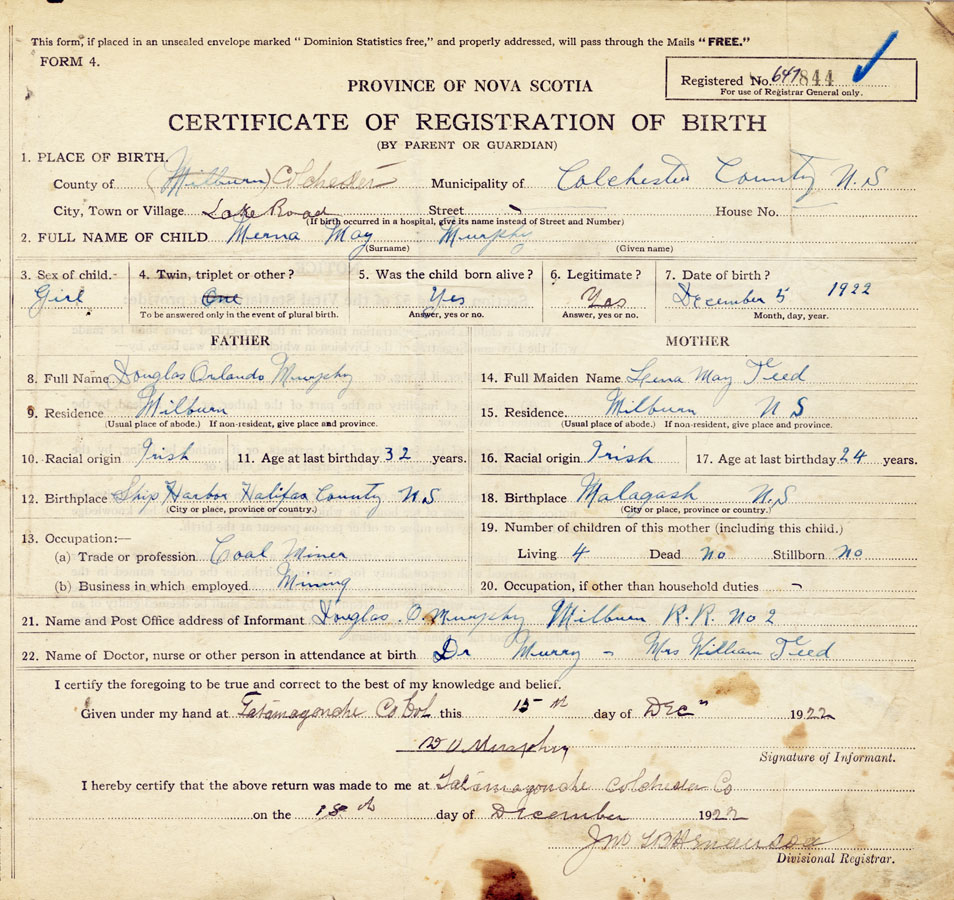 This form, if placed in an unsealed envelope marked "Dominion Statistics free," and properly addressed, will pass through the Mails "FREE."
FORM 4.
Registered No. 647 844
For use of Registrar General only.
PROVINCE OF NOVA SCOTIA
CERTIFICATE OF REGISTRATION OF BIRTH
(BY PARENT OR GUARDIAN)
1. PLACE OF BIRTH.
County of (Milburn) Colchester Municipality of Colchester County N.S
City, Town or Village Lake Road Street House No.
(If birth occurred in a hospital, give its name instead of Street and Number)
2. FULL NAME OF CHILD Merna May Murphy
(Surname) (Given name)
3. Sex of child.- 4. Twin, triplet or other? 5. Was the child born alive? 6. Legitimate? 7. Date of birth?
Girl One Yes Yes December 5 1922
To be answered only in the event of plural birth. Answer, yes or no. Answer, yes or no. Month, day, year.
FATHER MOTHER
8. Full Name Douglas Orlando Murphy 14. Full Maiden Name Lena May Teed
9. Residence Milburn 15. Residence. Milburn N S
(Usual place of abode.) If non-resident, give place and province. (Usual place of abode.) If non-resident, give place and province.
10. Racial origin Irish 11. Age at last birthday 32 years. 16. Racial origin Irish 17. Age at last birthday 24 years.
12. Birthplace Ship Harbor Halifax County N.S 18. Birthplace Malagash N.S
(City or place, province or country.) (City or place, province or country.)
19. Number of children of this mother (including this child.)
13. Occupation:—
(a) Trade or profession Coal Miner Living 4 Dead no Stillborn no
(b) Business in which employed Mining 20. Occupation, if other than household duties
21. Name and Post Office address of Informant Douglas. O. Murphy Milburn R.R. No 2
22. Name of Doctor, nurse or other person in attendance at birth Dr Murry - Mrs William Teed
I certify the foregoing to be true and correct to the best of my knowledge and belief.
Given under my hand at Tatamagouche Co Col this 15th day of Dec" 1922
D O Murphy
Signature of Informant.
I hereby certify that the above return was made to me at Tatamagouche Colchester Co
on the 15th day of December 1922
Jno
Divisional Registrar.